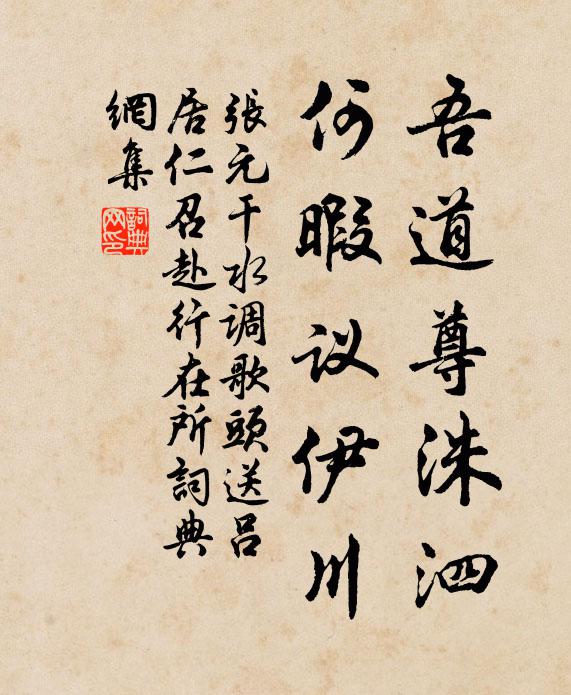 吾道尊洙泗
何暇议伊川
張元干水调歌頭送吕
居仁召赴行在所詞典
網集
詞典
网印